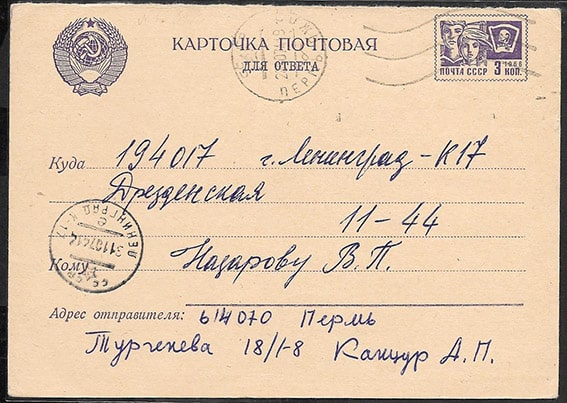 КАРТОЧКА ПОЧТОВАЯ
ДЛЯ ОТВЕТА
ПОЧТА СССР 3 КОП.
1966
Куда 194017 г. Ленинград-К17
Дрезденская
11-44
Кому Назарову В.П.
ЛЕНИНГРАД К-17
Адрес отправителя: 614070 Пермь
Тургенева 18/1-8 Канцур А.П.